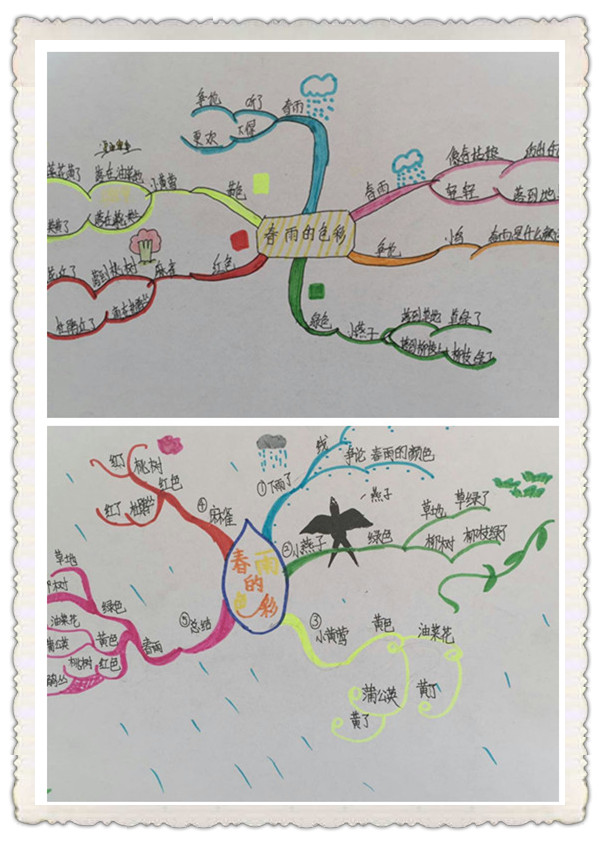 争论
听了
春雨
更欢
春雨
轻轻
落到地
春雨的色彩
争论
小鸟
春雨是什么颜
绿色
小燕子
落到草地
草绿了
柳枝绿了
黄色
小黄莺
落在油菜地
红色
麻雀
①下雨了
争论
春雨的颜色
②小燕子
燕子
绿色
草地
草绿了
柳树
柳枝绿了
③
小黄莺
黄色
油菜花
黄了
蒲公英
黄了
④
麻雀
红色
桃树
红了
杜鹃
红了
⑤
总结
春雨
绿色
草地
黄色
油菜花
蒲公英
红色
桃树
春雨的色彩